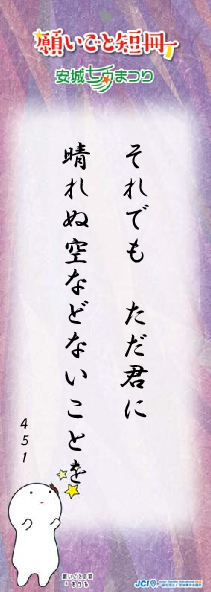 願いごと短冊
安城七夕まつり
それでも　ただ君に
晴れぬ空などないことを
451
JCI